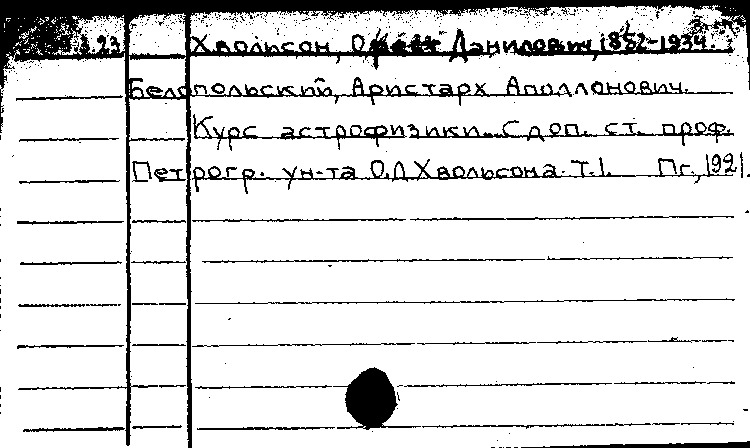 23 Хвольсон, Орест Данилович, 1852-1934.
Белопольский, Аристарх Аполлонович.
Курс астрофизики. С доп. ст. проф.
Петрогр. ун-та О.Д Хвольсона. Т.1. Пг., 1921.